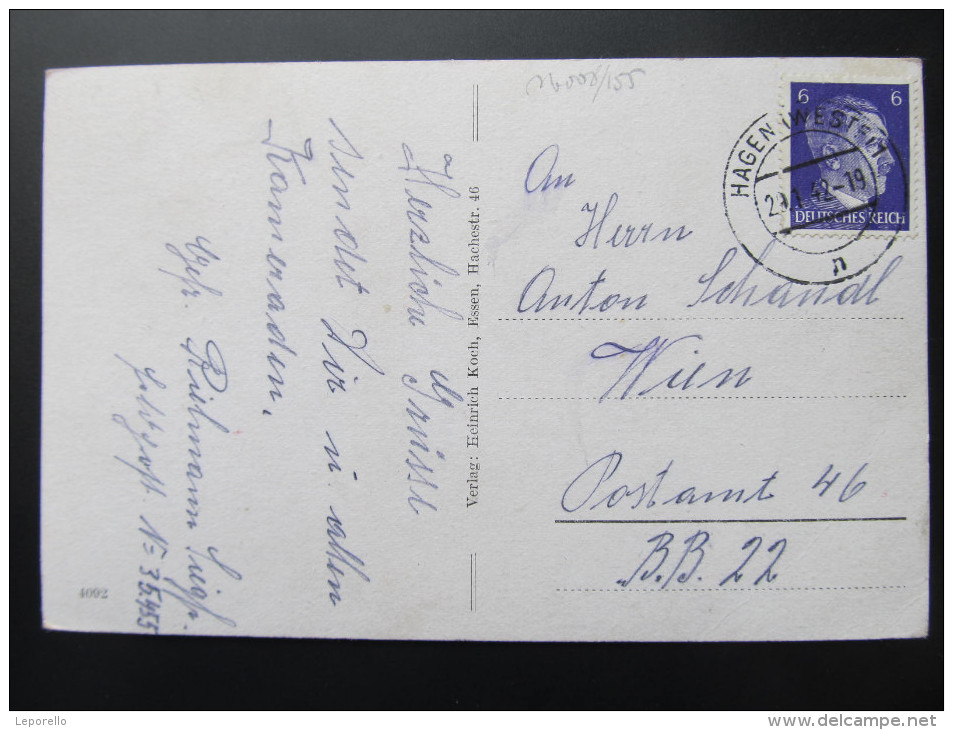 Herzliche Grüsse
sendet Dir u. allen
Kameraden.
Gefr. Reilmann Siegfr.
Feldpost N= 35.455
4092
Verlag: Heinrich Koch, Essen, Hachestr. 46
6 6
DEUTSCHES REICH
HAGEN (WESTF)1
29.1.42-19
n
An
Herrn
Anton Schandl
Wien
Postamt 46
B.B. 22
Leporello
www.delcampe.net